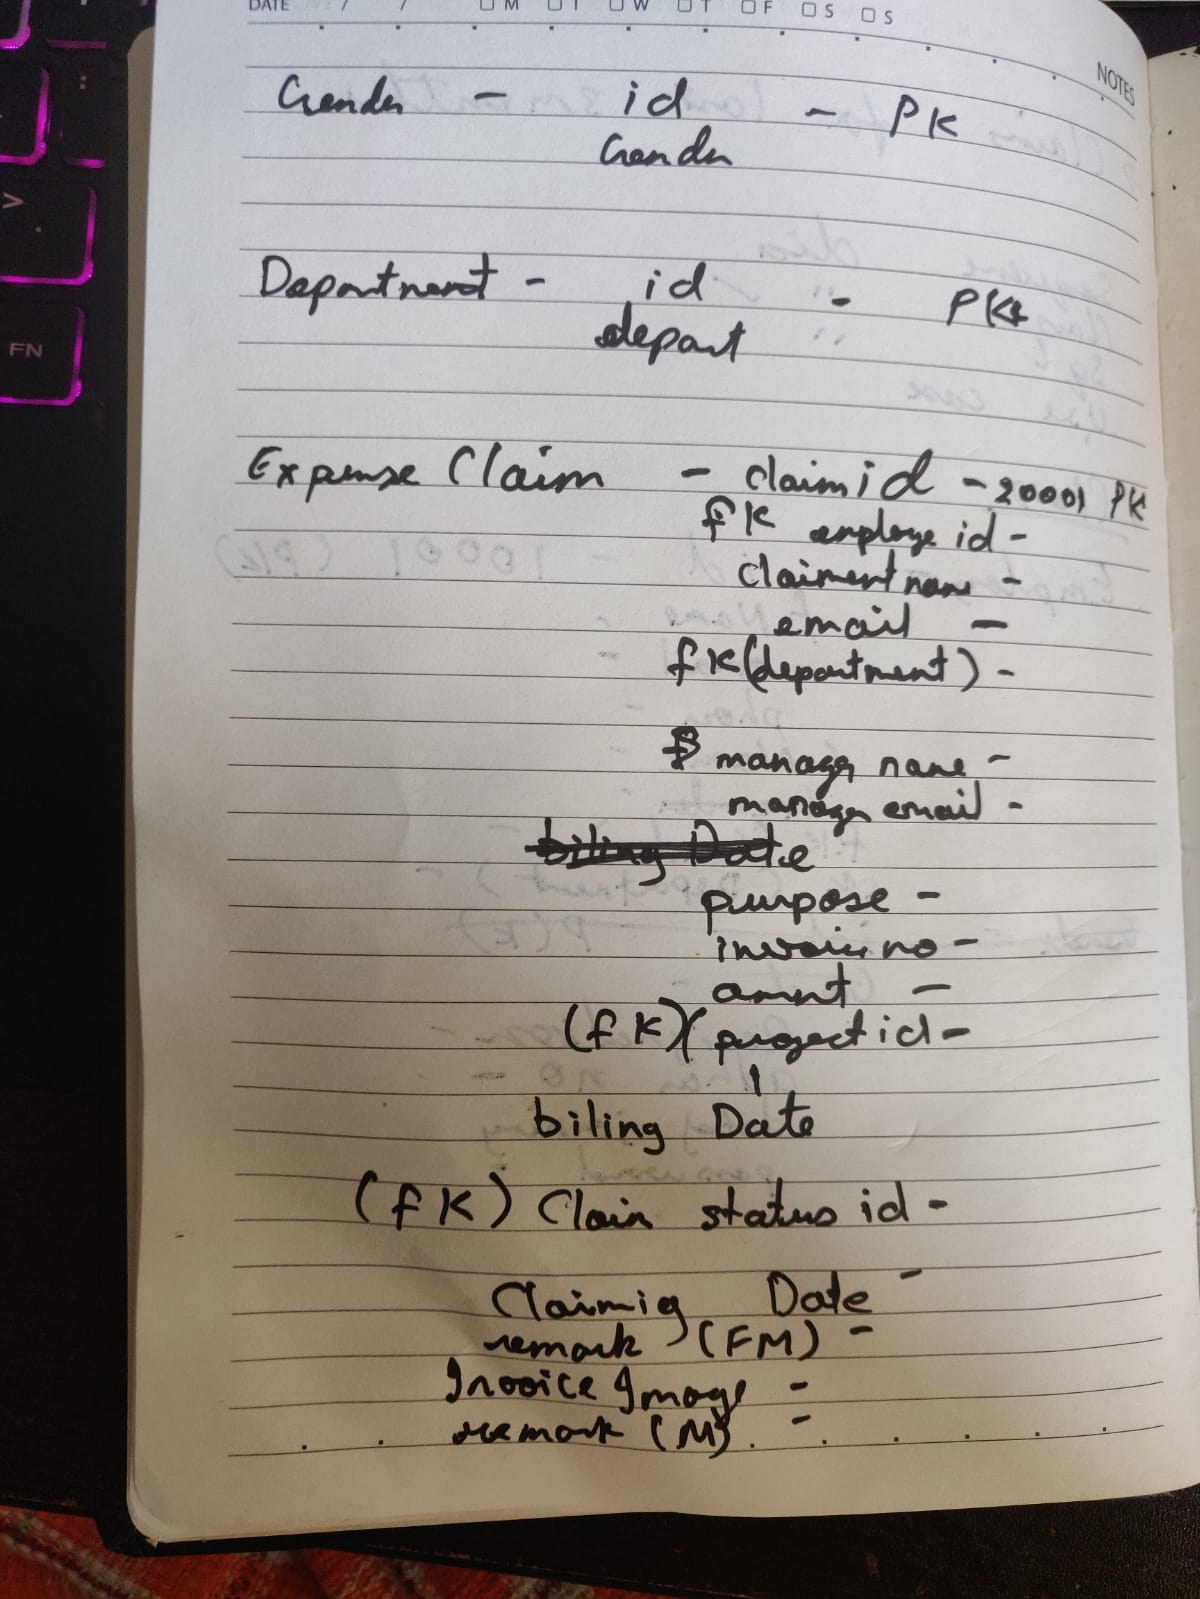 DATE / / M T W T F S S
NOTES
Gender - id - PK
Gender
Department - id - PK
depart
Expense Claim - claim id - 20001 PK
fk employe id -
claiment name -
email -
fk (department) -
manager name -
manager email -
biling Date
purpose -
invoice no -
amnt -
(fK) ( project id -
biling Date
(fK) Claim status id -
Claimig Date -
remark (FM) -
Invoice Image -
remark (M) -
FN